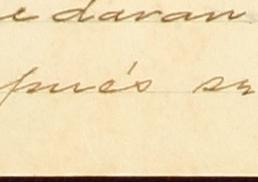 edaran
pués su